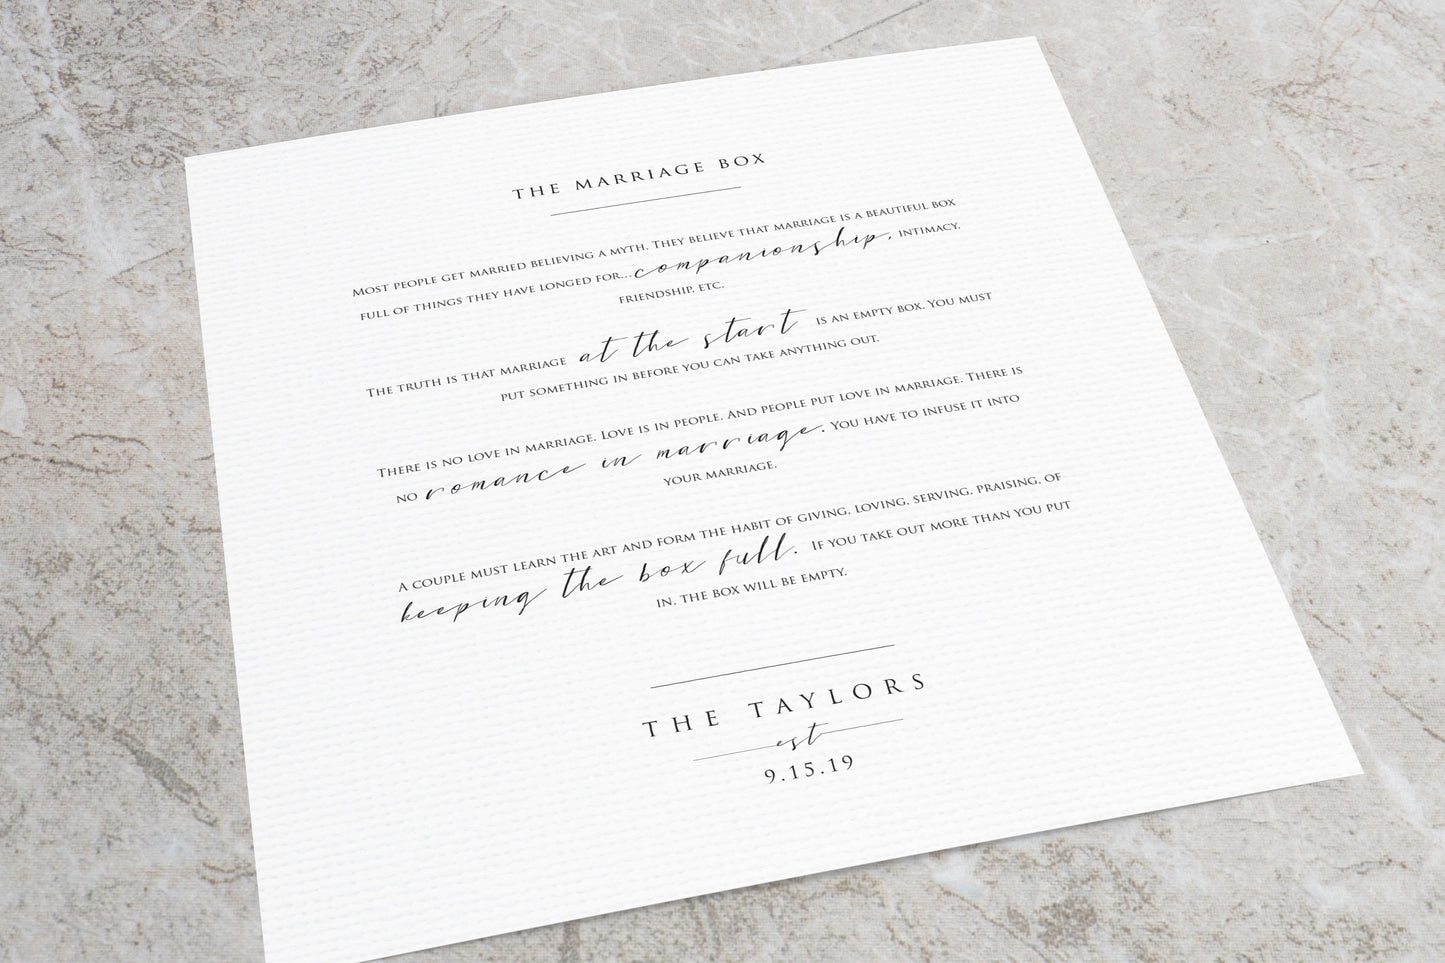 THE MARRIAGE BOX
MOST PEOPLE GET MARRIED BELIEVING A MYTH. THEY BELIEVE THAT MARRIAGE IS A BEAUTIFUL BOX
FULL OF THINGS THEY HAVE LONGED FOR... companionship, INTIMACY,
FRIENDSHIP, ETC.
THE TRUTH IS THAT MARRIAGE at the start IS AN EMPTY BOX. YOU MUST
PUT SOMETHING IN BEFORE YOU CAN TAKE ANYTHING OUT.
THERE IS NO LOVE IN MARRIAGE. LOVE IS IN PEOPLE. AND PEOPLE PUT LOVE IN MARRIAGE. THERE IS
NO romance in marriage. YOU HAVE TO INFUSE IT INTO
YOUR MARRIAGE.
A COUPLE MUST LEARN THE ART AND FORM THE HABIT OF GIVING, LOVING, SERVING, PRAISING, OF
keeping the box full. IF YOU TAKE OUT MORE THAN YOU PUT
IN, THE BOX WILL BE EMPTY.
THE TAYLORS
est
9.15.19